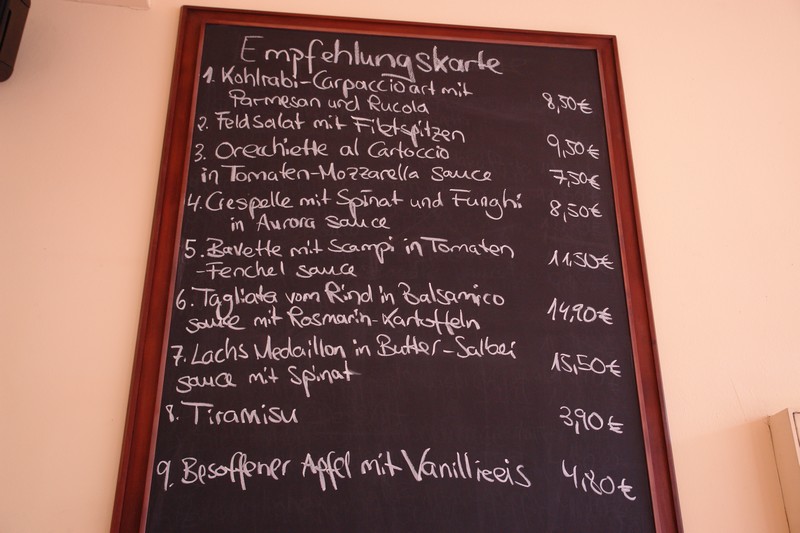 Empfehlungskarte
1. Kohlrabi-Carpaccio art mit
Parmesan und Rucola 8,50€
2. Feldsalat mit Filetspitzen 9,50€
3. Orecchiette al Cartoccio
in Tomaten-Mozzarella sauce 7,50€
4. Crespelle mit Spinat und Funghi 8,50€
in Aurora sauce
5. Bavette mit Scampi in Tomaten 11,50€
-Fenchel sauce
6. Tagliata vom Rind in Balsamico
sauce mit Rosmarin-Kartoffeln 14,90€
7. Lachs Medaillon in Butter-Salbei
sauce mit Spinat 15,50€
8. Tiramisu 3,90€
9. Besoffener Apfel mit Vanillieeis 4,80€